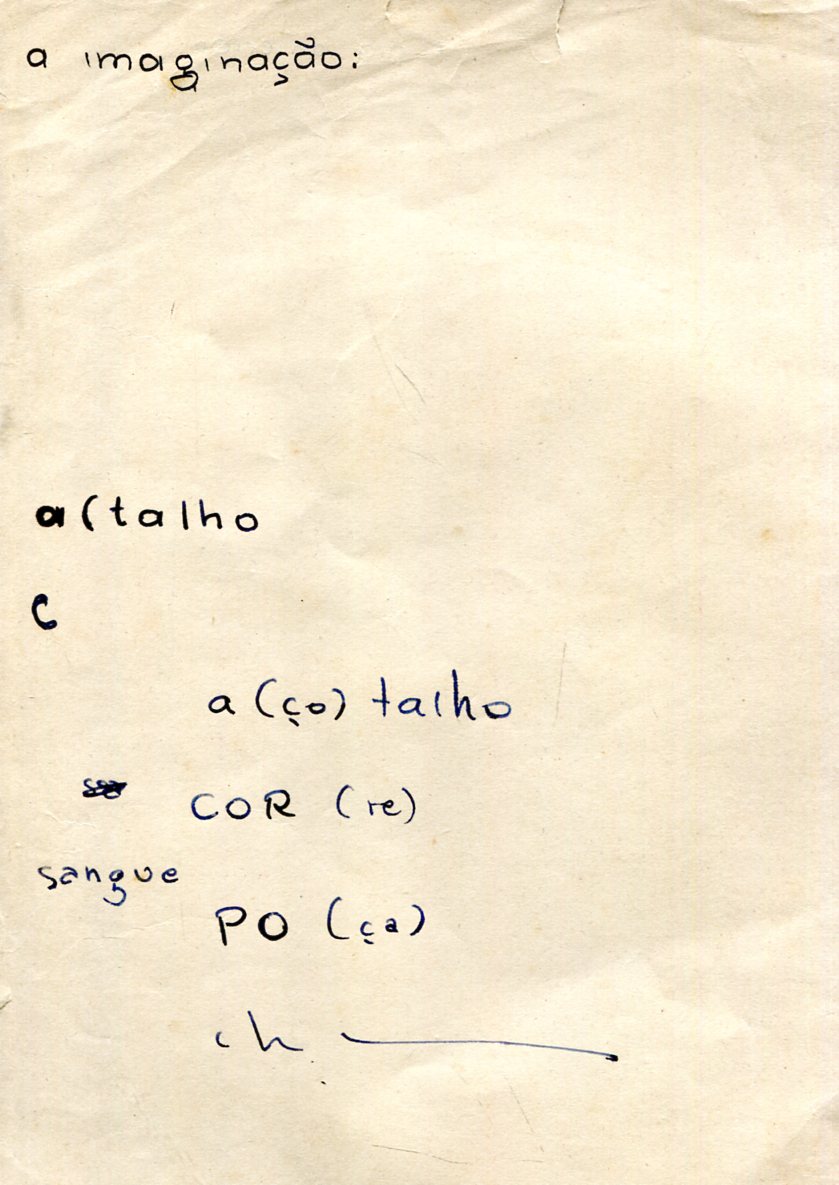 a imaginação:
a(talho
C
a (ço) talho
COR (re)
sangue
PO (ça)
ch